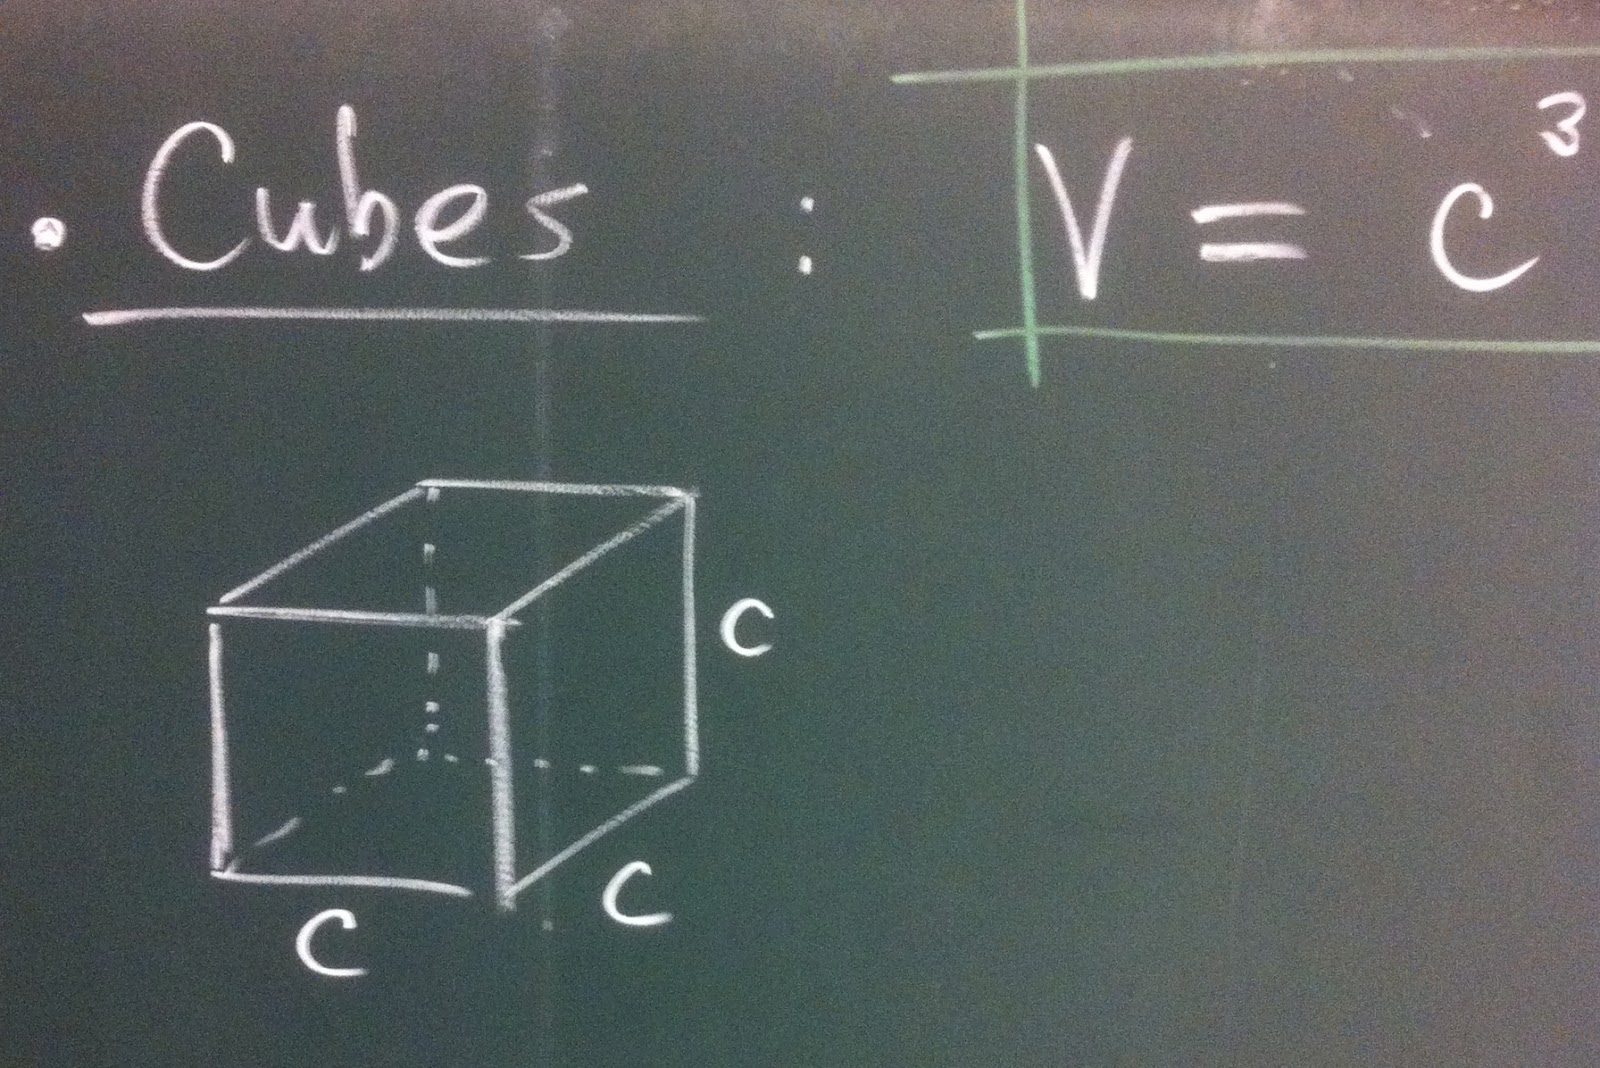 • Cubes : V = c³
c
c
c